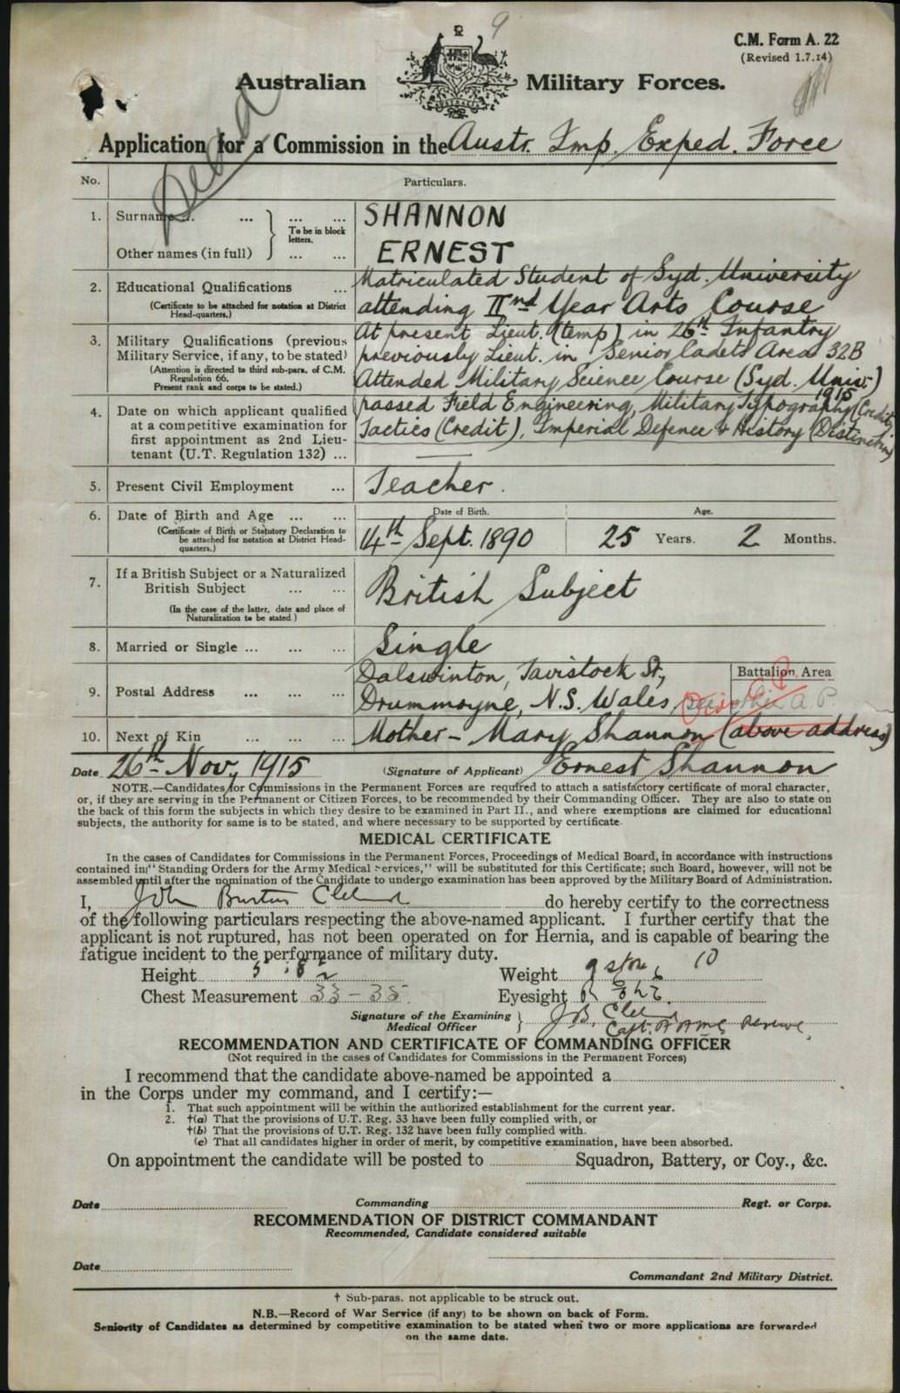 9
C.M. Form A. 22
(Revised 1.7.14)
Australian Military Forces.
Dead
Application for a Commission in the Austr. Imp. Exped. Force
No. Particulars.
1. Surname ... ... ... ... SHANNON
To be in block letters.
Other names (in full) ... ... ERNEST
2. Educational Qualifications ... Matriculated Student of Syd. University
(Certificate to be attached for notation at District Head-quarters.) attending IInd Year Arts Course
3. Military Qualifications (previous Military Service, if any, to be stated) At present Lieut. (temp) in 26th Infantry
previously Lieut. in Senior Cadets Area 32B
(Attention is directed to third sub-para. of C.M. Regulation 66. Present rank and corps to be stated.) Attended Military Science Course (Syd. Univ.)
1915
4. Date on which applicant qualified passed Field Engineering, Military Typography (Credit)
at a competitive examination for Tactics (Credit), Imperial Defence & History (Distinction)
first appointment as 2nd Lieu-
tenant (U.T. Regulation 132) ...
5. Present Civil Employment ... Teacher.
6. Date of Birth and Age ... ... Date of Birth. Age.
(Certificate of Birth or Statutory Declaration to be attached for notation at District Head-quarters.) 14th Sept. 1890 25 Years. 2 Months.
7. If a British Subject or a Naturalized
British Subject ... ... British Subject
(In the case of the latter, date and place of Naturalization to be stated)
8. Married or Single ... ... ... Single
9. Postal Address ... ... ... Dalswinton, Tavistock St,
Drummoyne, N.S. Wales,
Battalion Area
10. Next of Kin ... ... ... Mother - Mary Shannon (above address)
Date 26th Nov, 1915 (Signature of Applicant) Ernest Shannon
NOTE.—Candidates for Commissions in the Permanent Forces are required to attach a satisfactory certificate of moral character,
or, if they are serving in the Permanent or Citizen Forces, to be recommended by their Commanding Officer. They are also to state on
the back of this form the subjects in which they desire to be examined in Part II., and where exemptions are claimed for educational
subjects, the authority for same is to be stated, and where necessary to be supported by certificate
MEDICAL CERTIFICATE
In the cases of Candidates for Commissions in the Permanent Forces, Proceedings of Medical Board, in accordance with instructions
contained in "Standing Orders for the Army Medical Services," will be substituted for this Certificate; such Board, however, will not be
assembled until after the nomination of the Candidate to undergo examination has been approved by the Military Board of Administration.
I, John Burton Cleland do hereby certify to the correctness
of the following particulars respecting the above-named applicant. I further certify that the
applicant is not ruptured, has not been operated on for Hernia, and is capable of bearing the
fatigue incident to the performance of military duty.
Height Weight 9 stone 10
Chest Measurement 33 - 35 Eyesight
Signature of the Examining Medical Officer } J.B. Cleland
Capt. AAMC Reserve
RECOMMENDATION AND CERTIFICATE OF COMMANDING OFFICER
(Not required in the cases of Candidates for Commissions in the Permanent Forces)
I recommend that the candidate above-named be appointed a
in the Corps under my command, and I certify:—
1. That such appointment will be within the authorized establishment for the current year.
2. †(a) That the provisions of U.T. Reg. 33 have been fully complied with, or
†(b) That the provisions of U.T. Reg. 132 have been fully complied with.
(c) That all candidates higher in order of merit, by competitive examination, have been absorbed.
On appointment the candidate will be posted to Squadron, Battery, or Coy., &c.
Date Commanding Regt. or Corps.
RECOMMENDATION OF DISTRICT COMMANDANT
Recommended, Candidate considered suitable
Date
Commandant 2nd Military District.
† Sub-paras. not applicable to be struck out.
N.B.—Record of War Service (if any) to be shown on back of Form.
Seniority of Candidates as determined by competitive examination to be stated when two or more applications are forwarded
on the same date.